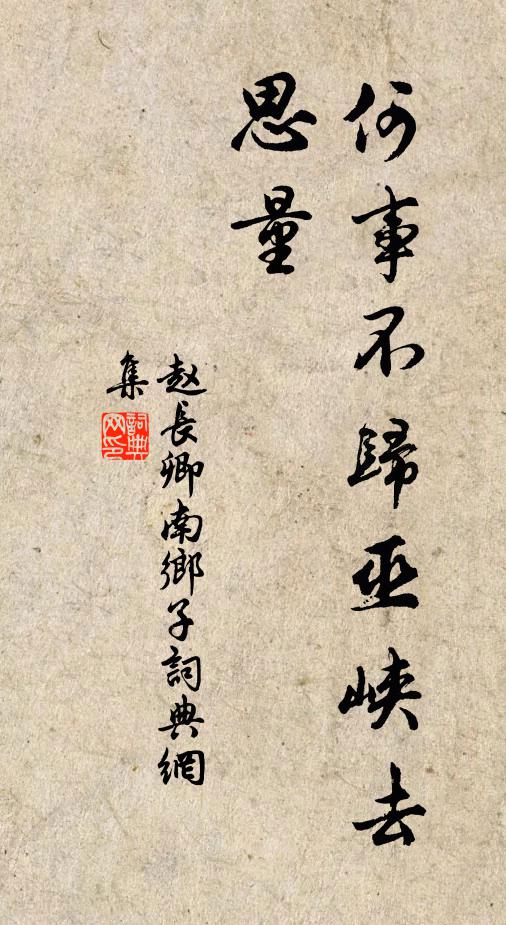 何事不歸巫峽去
思量
赵長卿南鄉子詞典網
集
詞典
网印